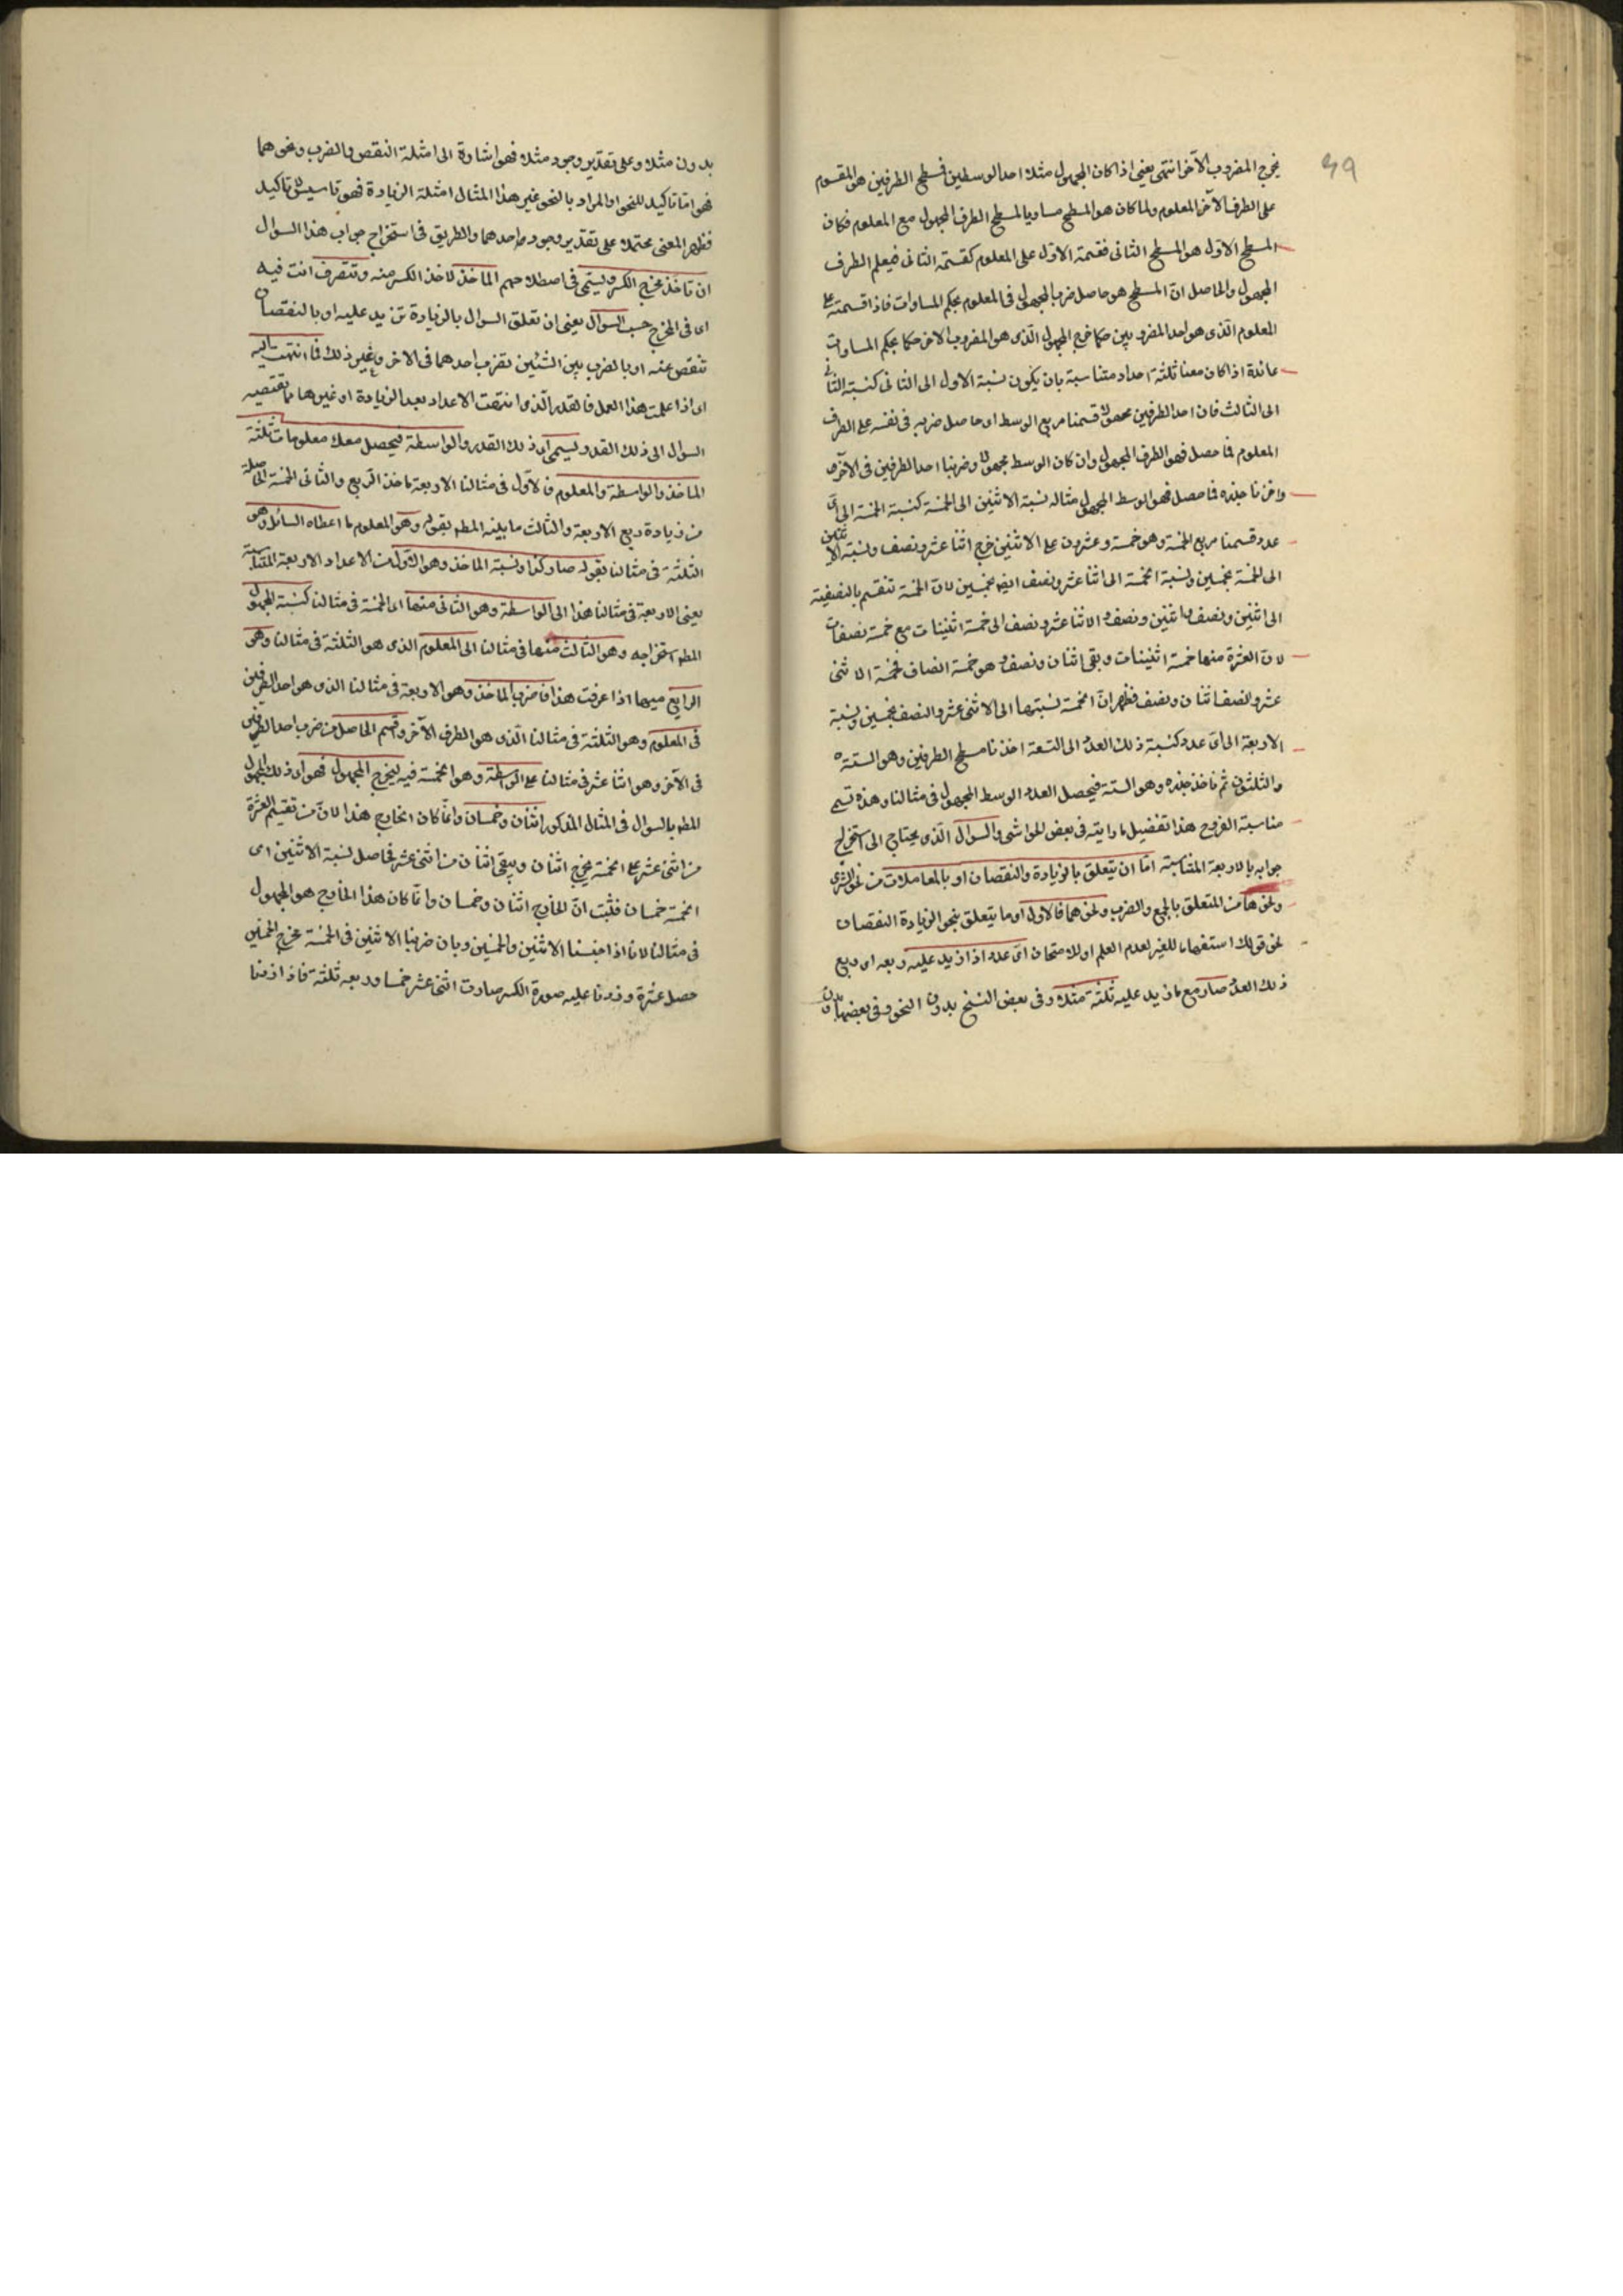 ٤٩
يخرج المضروب الآخر انتهى يعنى اذا كان المجهول مثلا احد الوسطين فسطح الطرفين هو المقسوم
على الطرف الآخر المعلوم ولما كان هو المسطح مساويا لمسطح الطرف المجهول مع المعلوم فكان
المسطح الاول هو المسطح الثانى فقسمة الاول على المعلوم كقسمة الثانى فيعلم الطرف
المجهول والحاصل ان المسطح هو حاصل ضرب المجهول فى المعلوم بحكم المساوات فاذا قسمته على
المعلوم الذى هو احد المضروبين حكما خرج المجهول الذى هو المضروب الآخر حكما بحكم المساوات
فائدة اذا كان معنا ثلثة اعداد متناسبة بان يكون نسبة الاول الى الثانى كنسبة الثانى
الى الثالث فان احد الطرفين مجهولا قسمنا مربع الوسط اى حاصل ضربه فى نفسه على الطرف
المعلوم فما حصل فهو الطرف المجهول وان كان الوسط مجهولا وضربنا احد الطرفين فى الآخر
واخذنا جذره فما حصل فهو الوسط المجهول مثاله نسبة الاثنين الى الخمسة كنسبة الخمسة الى اى
عدد قسمنا مربع الخمسة وهو خمسة وعشرون على الاثنين خرج اثنا عشر ونصف ونسبة الاثنين
الى الخمسة بخمسين ونسبة الخمسة الى اثنا عشر ونصف ايضا بخمسين لان الخمسة تنقسم بالنصفية
الى اثنين ونصف واثنين ونصف والاثنا عشر ونصف الى خمسة اثنينات مع خمسة نصفات
لان العشرة منها خمسة اثنينات وبقى اثنان ونصف وهو خمسة انصاف فخمسة الاثنى
عشر والنصف اثنان ونصف فظهر ان الخمسة نسبتها الى الاثنى عشر والنصف بخمسين ونسبة
الاربعة الى اى عدد كنسبة ذلك العدد الى التسعة اخذنا مسطح الطرفين وهو الستة
والثلثون ثم ناخذ جذره وهو الستة فيحصل العدد الوسط المجهول فى مثالنا وهذه تسمى
مناسبة الفروج هذا تفصيل ما رايته فى بعض الحواشى والسؤال الذى يحتاج الى استخراج
جوابه بالاربعة المتناسبة اما ان يتعلق بالزيادة والنقصان او بالمعاملات من نحو الشرى
ونحوها من المتعلق بالجمع والضرب ونحوهما فالاول اى ما يتعلق بنحو الزيادة النقصان
نحو قولك استفهاما للغير لعدم العلم او لامتحان اى عدد اذا زيد عليه ربعه اى ربع
ذلك العدد صار مع ما زيد عليه ثلثة مثلا وفى بعض النسخ بدون النحو وفى بعضها
بدون مثلا وعلى تقدير وجود مثلا فهو اشارة الى امثلة النقص والضرب ونحوهما
فهو اما تاكيد للنحو او المراد بالنحو غير هذا المثال امثلة الزيادة فهو تاسيس لا تاكيد
فظهر المعنى محتملا على تقدير وجود واحدهما والطريق فى استخراج جواب هذا السؤال
ان تاخذ مخرج الكسر ويسمى فى اصطلاحهم الماخذ لاخذ الكسر منه وتتصرف انت فيه
اى فى المخرج حسب السؤال يعنى ان تعلق السؤال بالزيادة تزيد عليه او بالنقصان
تنقص عنه او بالضرب بين الشيئين تضرب احدهما فى الآخر وغير ذلك فما انتهت اليه
اى اذا علمت هذا العمل فالقدر الذى انتهت الاعداد بعد الزيادة او غيرها مما يقتضيه
السؤال الى ذلك القدر ويسمى اى ذلك القدر والواسطة فيحصل معك معلومات ثلثة
الماخذ والواسطة والمعلوم فالاول فى مثالنا الاربعة ماخذ الربع والثانى الخمسة الحاصلة
من زيادة ربع الاربعة والثالث ما بينه المط بقوله وهو المعلوم ما اعطاه السائل وهو
الثلثة فى مثالنا بقوله صار كذا ونسبة الماخذ وهو الاول من الاعداد الاربعة المتناسبة
يعنى الاربعة فى مثالنا هذا الى الواسطة وهو الثانى منها اى الخمسة فى مثالنا كنسبة المجهول
المط استخراجه وهو الثالث منها فى مثالنا الى المعلوم الذى هو الثلثة فى مثالنا وهو
الرابع منها اذا عرفت هذا فاضرب الماخذ وهو الاربعة فى مثالنا الذى هو احد الطرفين
فى المعلوم وهو الثلثة فى مثالنا الذى هو الطرف الآخر واقسم الحاصل من ضرب احد الطرفين
فى الآخر وهو اثنا عشر فى مثالنا على الواسطة وهو الخمسة فيه ليخرج المجهول فهو اى ذلك المجهول
المط بالسؤال فى المثال المذكور اثنان وخمسان وانما كان الخارج هذا لان من تقسيم العشرة
من اثنى عشر على الخمسة يخرج اثنان ويبقى اثنان من اثنى عشر فحاصل نسبة الاثنين اى
الخمسة خمسان فثبت ان الخارج اثنان وخمسان وانما كان هذا الخارج هو المجهول
فى مثالنا لانا اذا جنسنا الاثنين والخمسين وبان ضربنا الاثنين فى الخمسة مخرج الخمسين
حصل عشرة وزدنا عليه صورة الكسر صارت اثنى عشر خمسا وربعه ثلثة فاذا زدنا